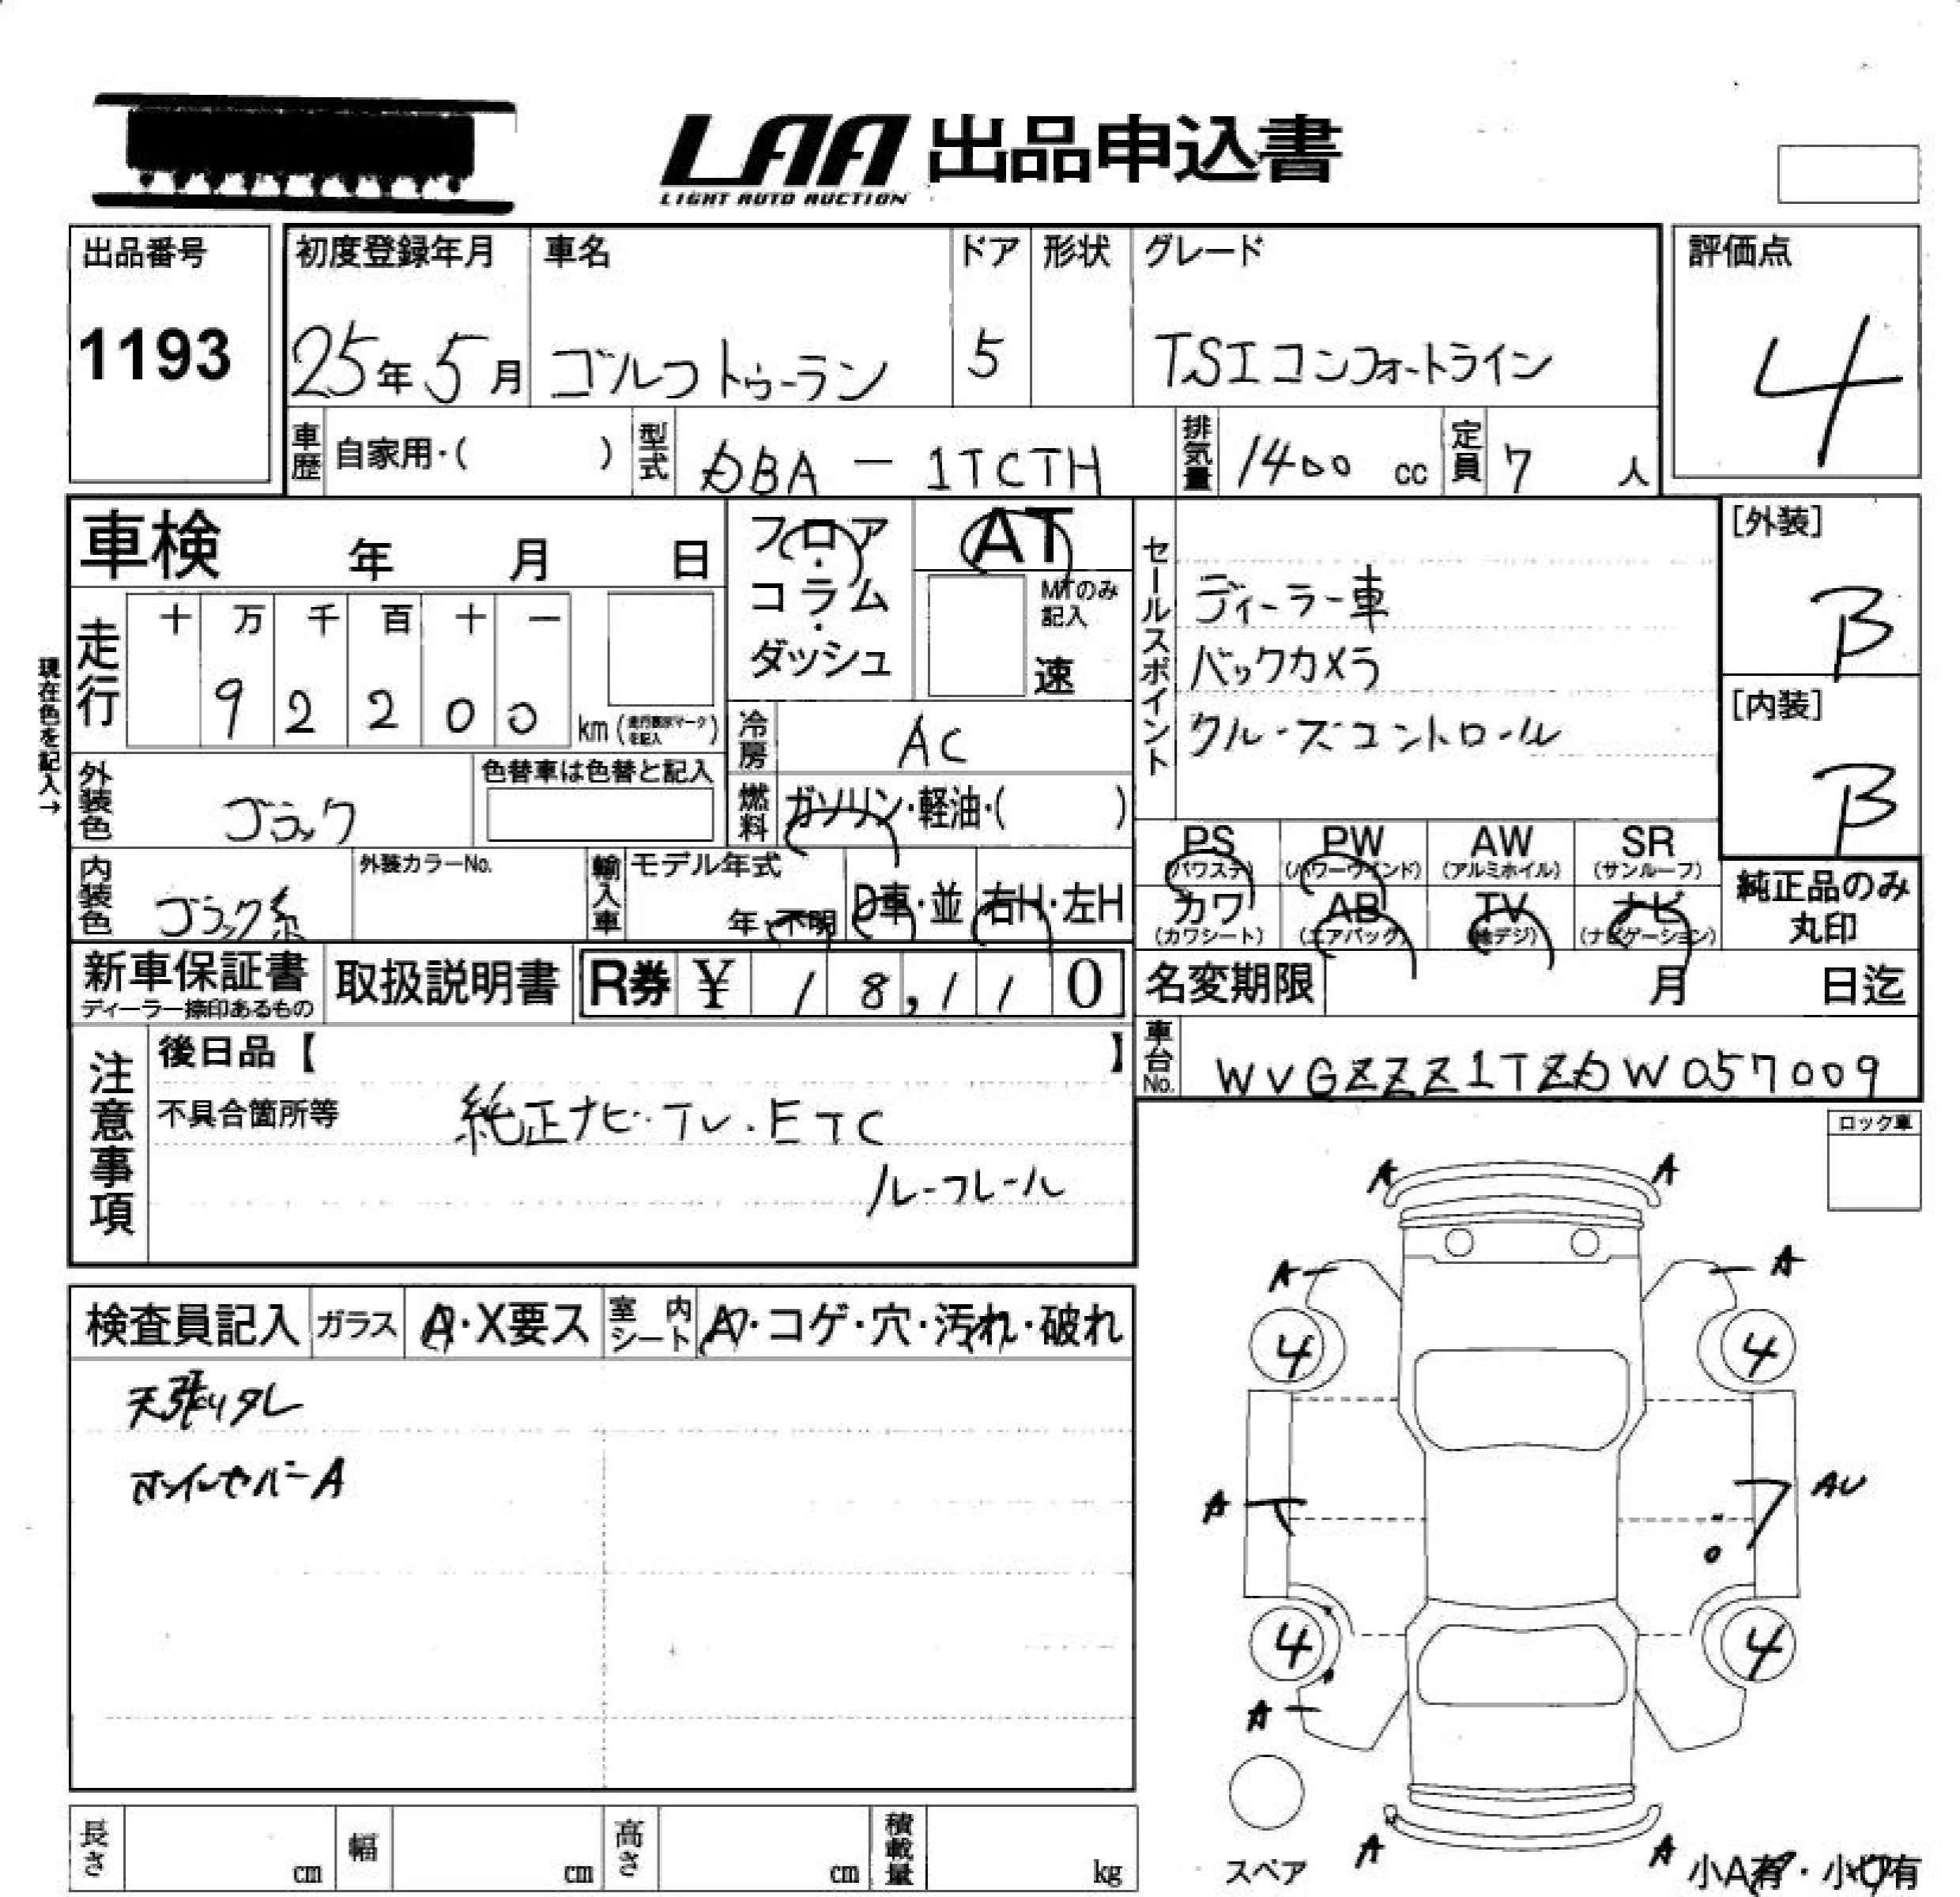 LAA 出品申込書
LIGHT AUTO AUCTION
出品番号
1193
初度登録年月
25年5月
車名
ゴルフトゥーラン
ドア
5
形状
グレード
TSIコンフォートライン
評価点
4
車歴 自家用・( )
型式 DBA-1TCTH
排気量 1400 cc
定員 7 人
車検 年 月 日
フロア・コラム・ダッシュ
AT
MTのみ記入
速
セールスポイント
ディーラー車
バックカメラ
クルーズコントロール
[外装]
B
[内装]
B
現在色を記入→
走行
十 万 千 百 十 一
9 2 2 0 0 km
冷房 AC
外装色 ブラック
色替車は色替と記入
燃料 ガソリン・軽油・( )
PS (パワステ) PW (パワーウインド) AW (アルミホイル) SR (サンルーフ)
カワ (カワシート) AB (エアバック) TV (地デジ) ナビ (ナビゲーション)
純正品のみ丸印
内装色 ブラック系
外装カラーNo.
輸入車 モデル年式
年・不明 D車・並 右H・左H
新車保証書
ディーラー捺印あるもの
取扱説明書
R券 ¥ 18,110
名変期限 月 日迄
車台No. WVGZZZ1TZDW057009
注意事項
後日品【 】
不具合箇所等
純正ナビ・TV・ETC
ルーフレール
ロック車
検査員記入 ガラス A・X要ス 室内シート A・コゲ・穴・汚れ・破れ
天張りタレ
A A
A A
4 4
A AU
4 4
A
スペア
A A
小A有・小U有
長さ cm 幅 cm 高さ cm 積載量 kg